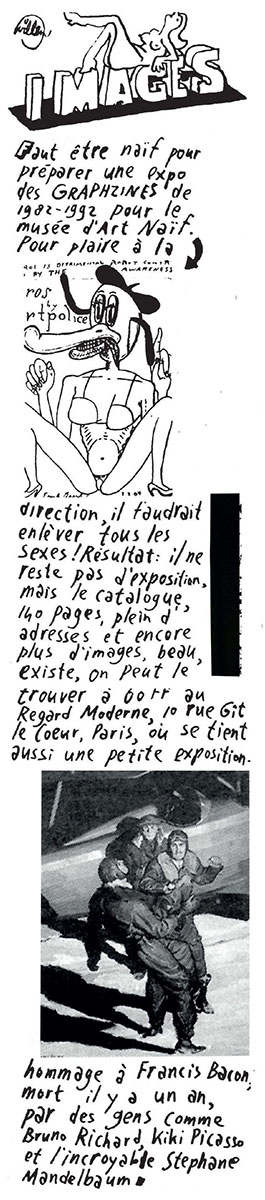 Willem
IMAGES
Faut être naïf pour
préparer une expo
des GRAPHZINES de
1982-1992 pour le
musée d'Art Naïf.
Pour plaire à la
ROS IS DETRIMENTAL ROBOT CONTR
BY THE AWARENESS
ros
rtpolice
direction, il faudrait
enlèver tous les
sexes! Résultat: il ne
reste pas d'exposition,
mais le catalogue,
140 pages, plein d'
adresses et encore
plus d'images, beau,
existe, on peut le
trouver à 60 FF au
Regard Moderne, 10 rue Gît
le Coeur, Paris, où se tient
aussi une petite exposition.
hommage à Francis Bacon,
mort il y a un an,
par des gens comme
Bruno Richard, Kiki Picasso
et l'incroyable Stephane
Mandelbaum.